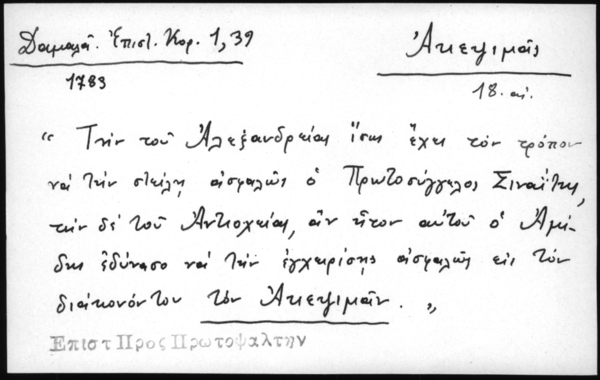 Δαμαλᾶ. Ἐπιστ. Κορ. 1, 39
1783
Ἀκεψιμᾶς
18. αἰ.
“ Τὴν τοῦ Ἀλεξανδρείας ἴσως ἔχει τὸν τρόπον
νὰ τὴν στείλῃ ἀσφαλῶς ὁ Πρωτοσύγγελος Σιναΐτης,
τὴν δὲ τοῦ Ἀντιοχείας, ἂν ἦτον αὐτοῦ ὁ Ἀμί-
δης ἐδύνασο νὰ τὴν ἐγχειρίσῃς ἀσφαλῶς εἰς τὸν
διάκονόν του τὸν Ἀκεψιμᾶν. „
Επιστ Προς Πρωτοψαλτην